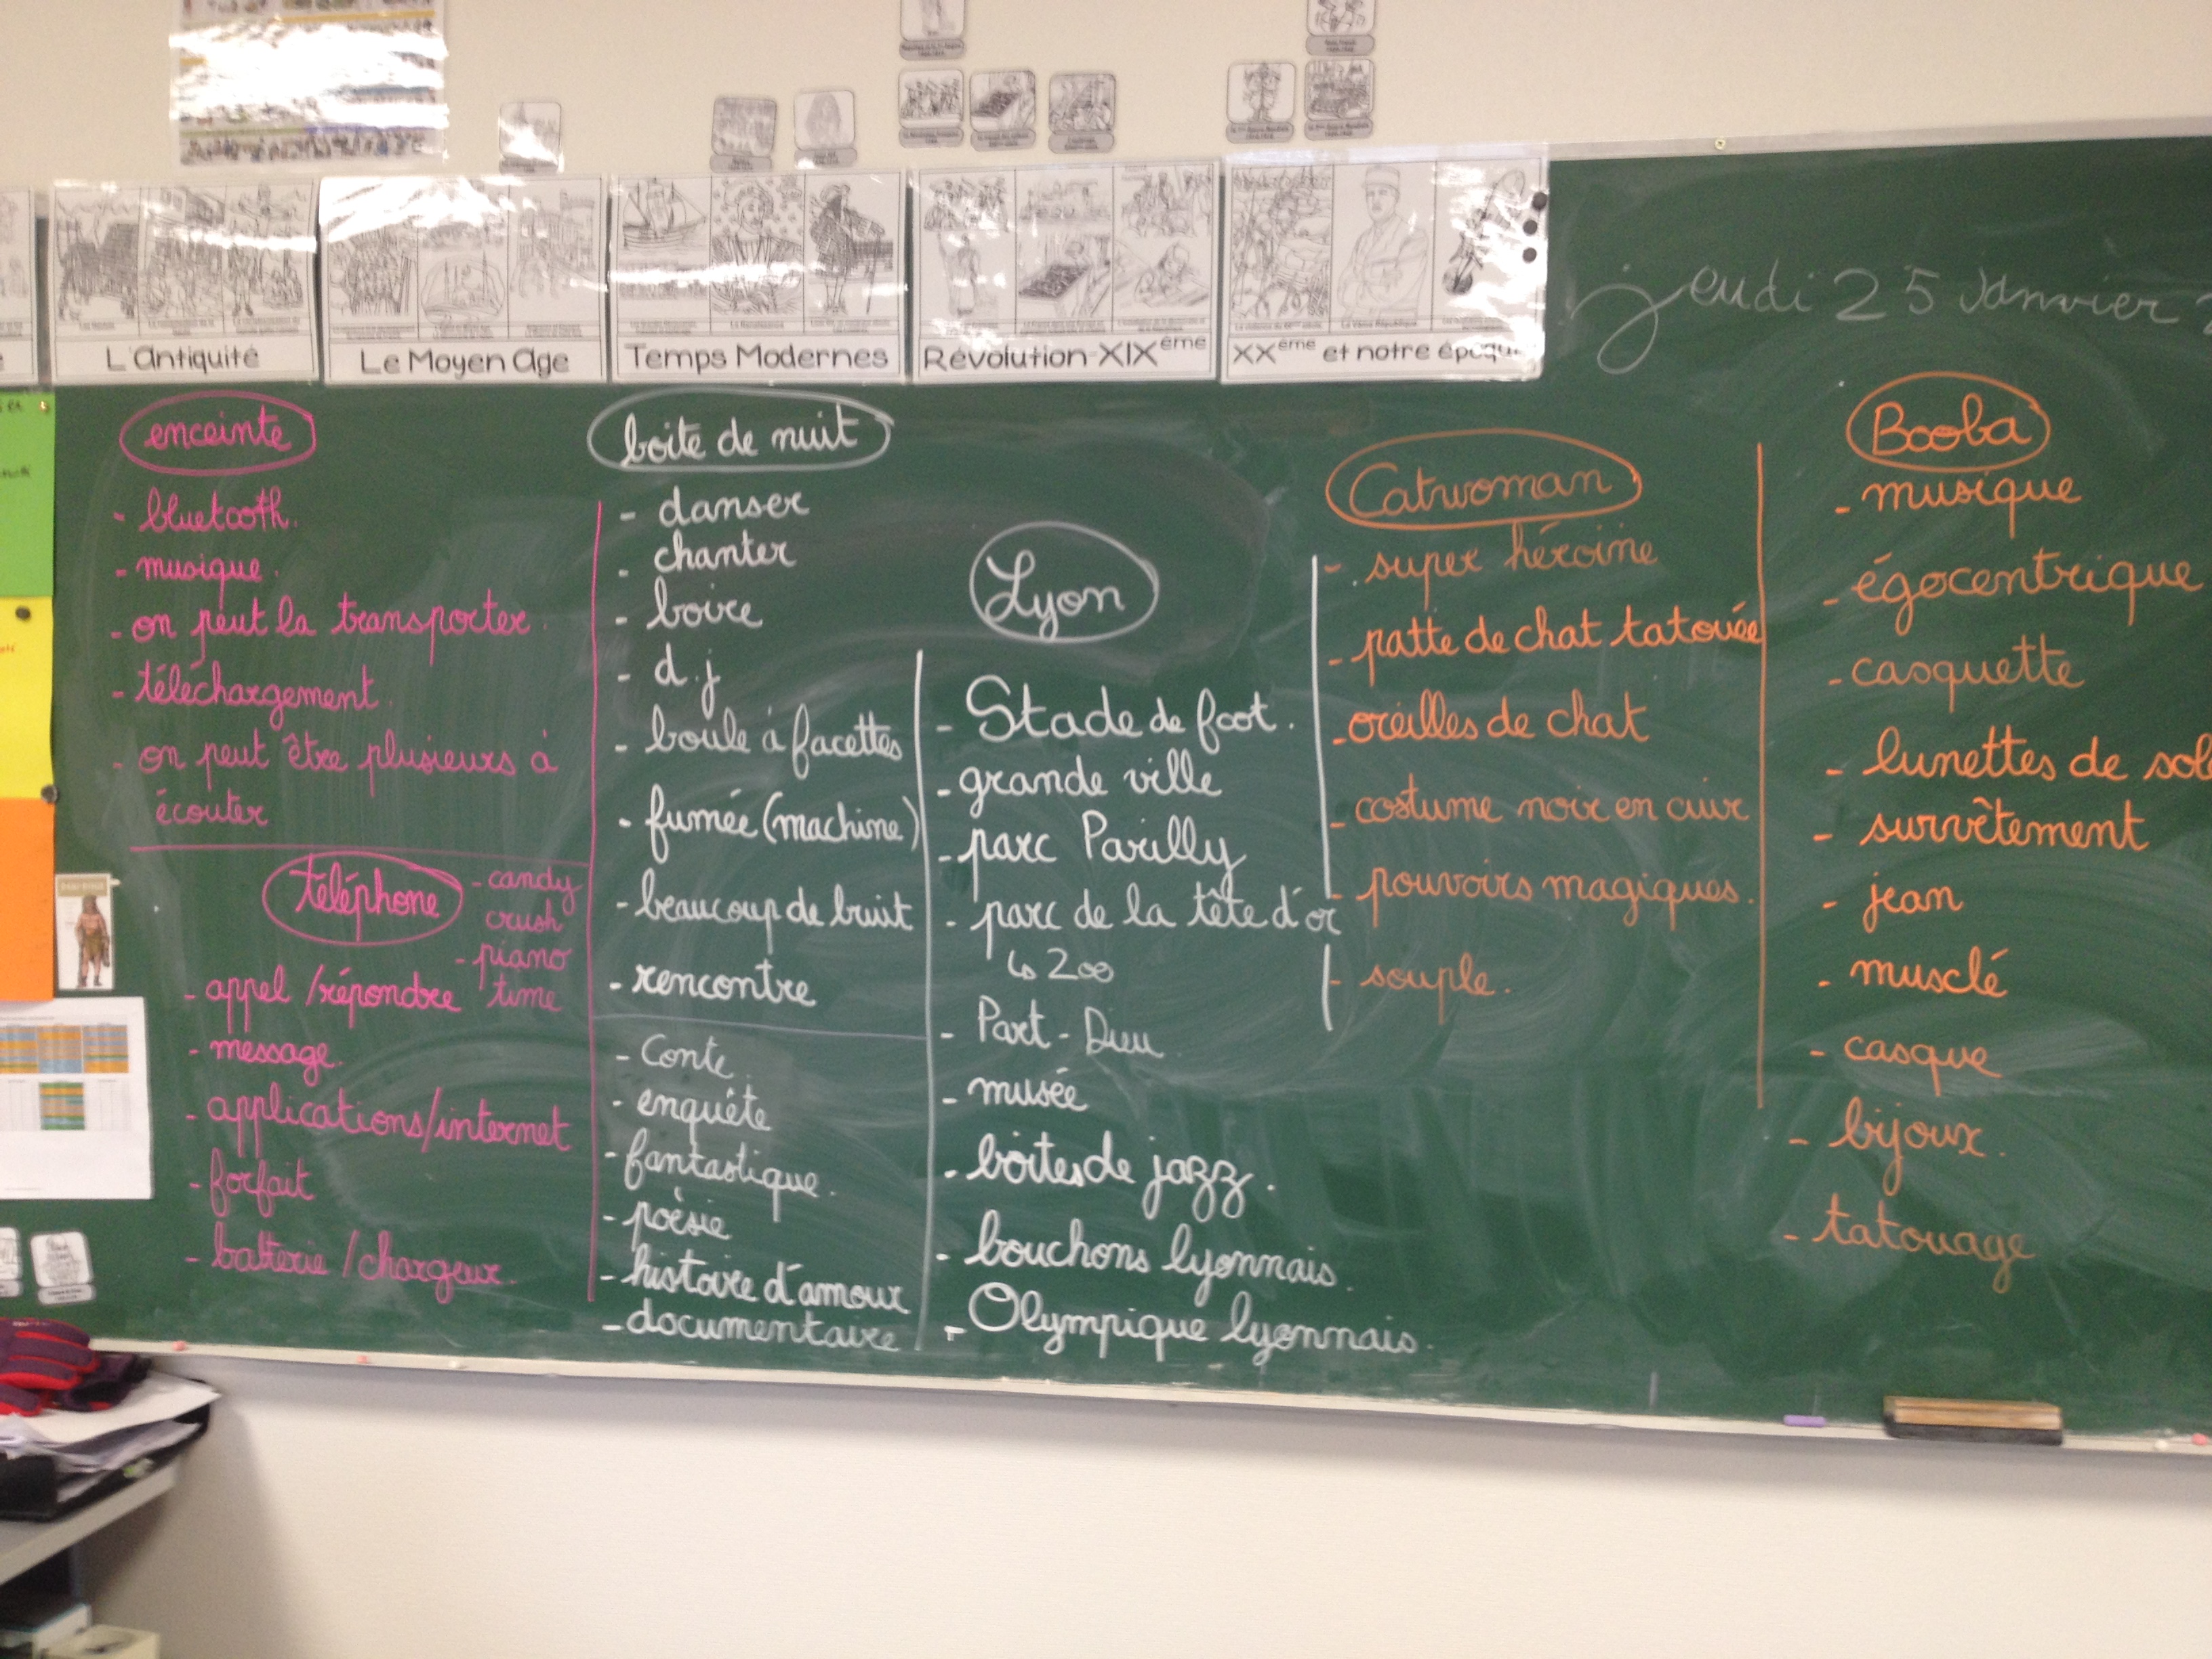 L'Antiquité
Le Moyen Age
Temps Modernes
Révolution-XIXème
XXème et notre époque
jeudi 25 janvier
enceinte
- bluetooth.
- musique.
- on peut la transporter.
- téléchargement.
- on peut être plusieurs à
écouter
téléphone
- candy
crush
- piano
time
- appel / répondre
- message.
- applications/internet
- forfait
- batterie / chargeur.
boite de nuit
- danser
- chanter
- boire
- d.j
- boule à facettes
- fumée (machine)
- beaucoup de bruit
- rencontre
- Conte.
- enquête
- fantastique.
- poésie
- histoire d'amour
- documentaire
Lyon
- Stade de foot.
- grande ville
- parc Parilly
- parc de la tête d'or
↳ zoo
- Part-Dieu.
- musée
- boîtes de jazz.
- bouchons lyonnais.
- Olympique lyonnais.
Catwoman
- super héroïne
- patte de chat tatouée
- oreilles de chat
- costume noir en cuir
- pouvoirs magiques.
- souple.
Booba
- musique
- égocentrique
- casquette
- lunettes de sol
- survêtement
- jean
- musclé
- casque
- bijoux.
- tatouage